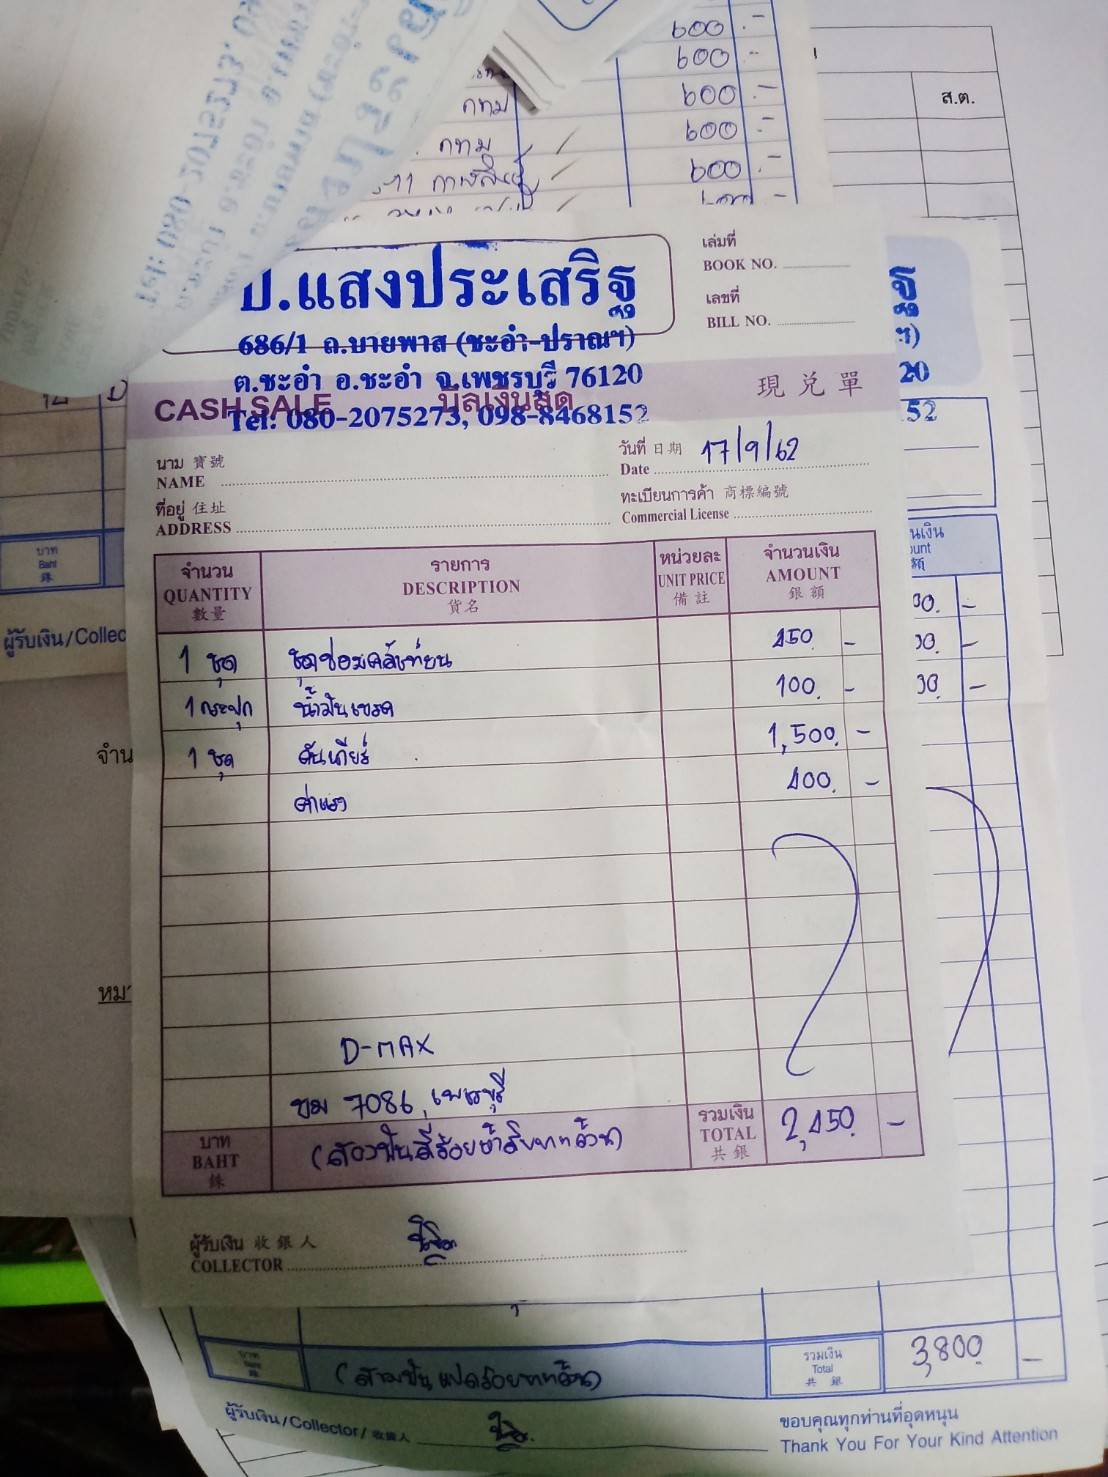 600 .-
600 -
กทม 600 .-
กทม 600 .-
600 .-
ส.ต.
ป.แสงประเสริฐ
686/1 ถ.บายพาส (ชะอำ-ปราณฯ)
ต.ชะอำ อ.ชะอำ จ.เพชรบุรี 76120
Tel: 080-2075273, 098-8468152
เล่มที่
BOOK NO.
เลขที่
BILL NO.
CASH SALE บิลเงินสด 現兑單
นาม 寶號
NAME
วันที่ 日期 17/9/62
Date
ที่อยู่ 住址
ADDRESS
ทะเบียนการค้า 商標編號
Commercial License
จำนวน รายการ หน่วยละ จำนวนเงิน
QUANTITY DESCRIPTION UNIT PRICE AMOUNT
數量 貨名 備註 銀額
1 ชุด ชุดซ่อมคลัชท์บน 450 -
1 กระปุก น้ำมันเบรค 100. -
1 ชุด คันเกียร์ 1,500. -
ค่าแรง 400. -
D-MAX
บม 7086 เพชรบุรี
บาท
BAHT
銖
(สองพันสี่ร้อยห้าสิบบาทถ้วน)
รวมเงิน
TOTAL
共銀
2,450. -
ผู้รับเงิน 收銀人
COLLECTOR
ฐ
ฯ)
20
52
นเงิน
ount
額
00. -
00. -
00. -
บาท
Baht
銖
ผู้รับเงิน/Collec
จำน
หม
บาท
Baht
銖
(สามพันแปดร้อยบาทถ้วน)
รวมเงิน
Total
共銀
3,800. -
ผู้รับเงิน/Collector/收銀人
ขอบคุณทุกท่านที่อุดหนุน
Thank You For Your Kind Attention